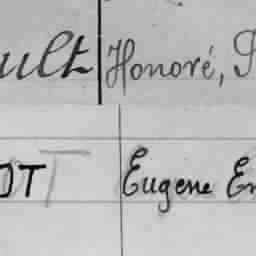 ult Honoré,
OTT Eugene